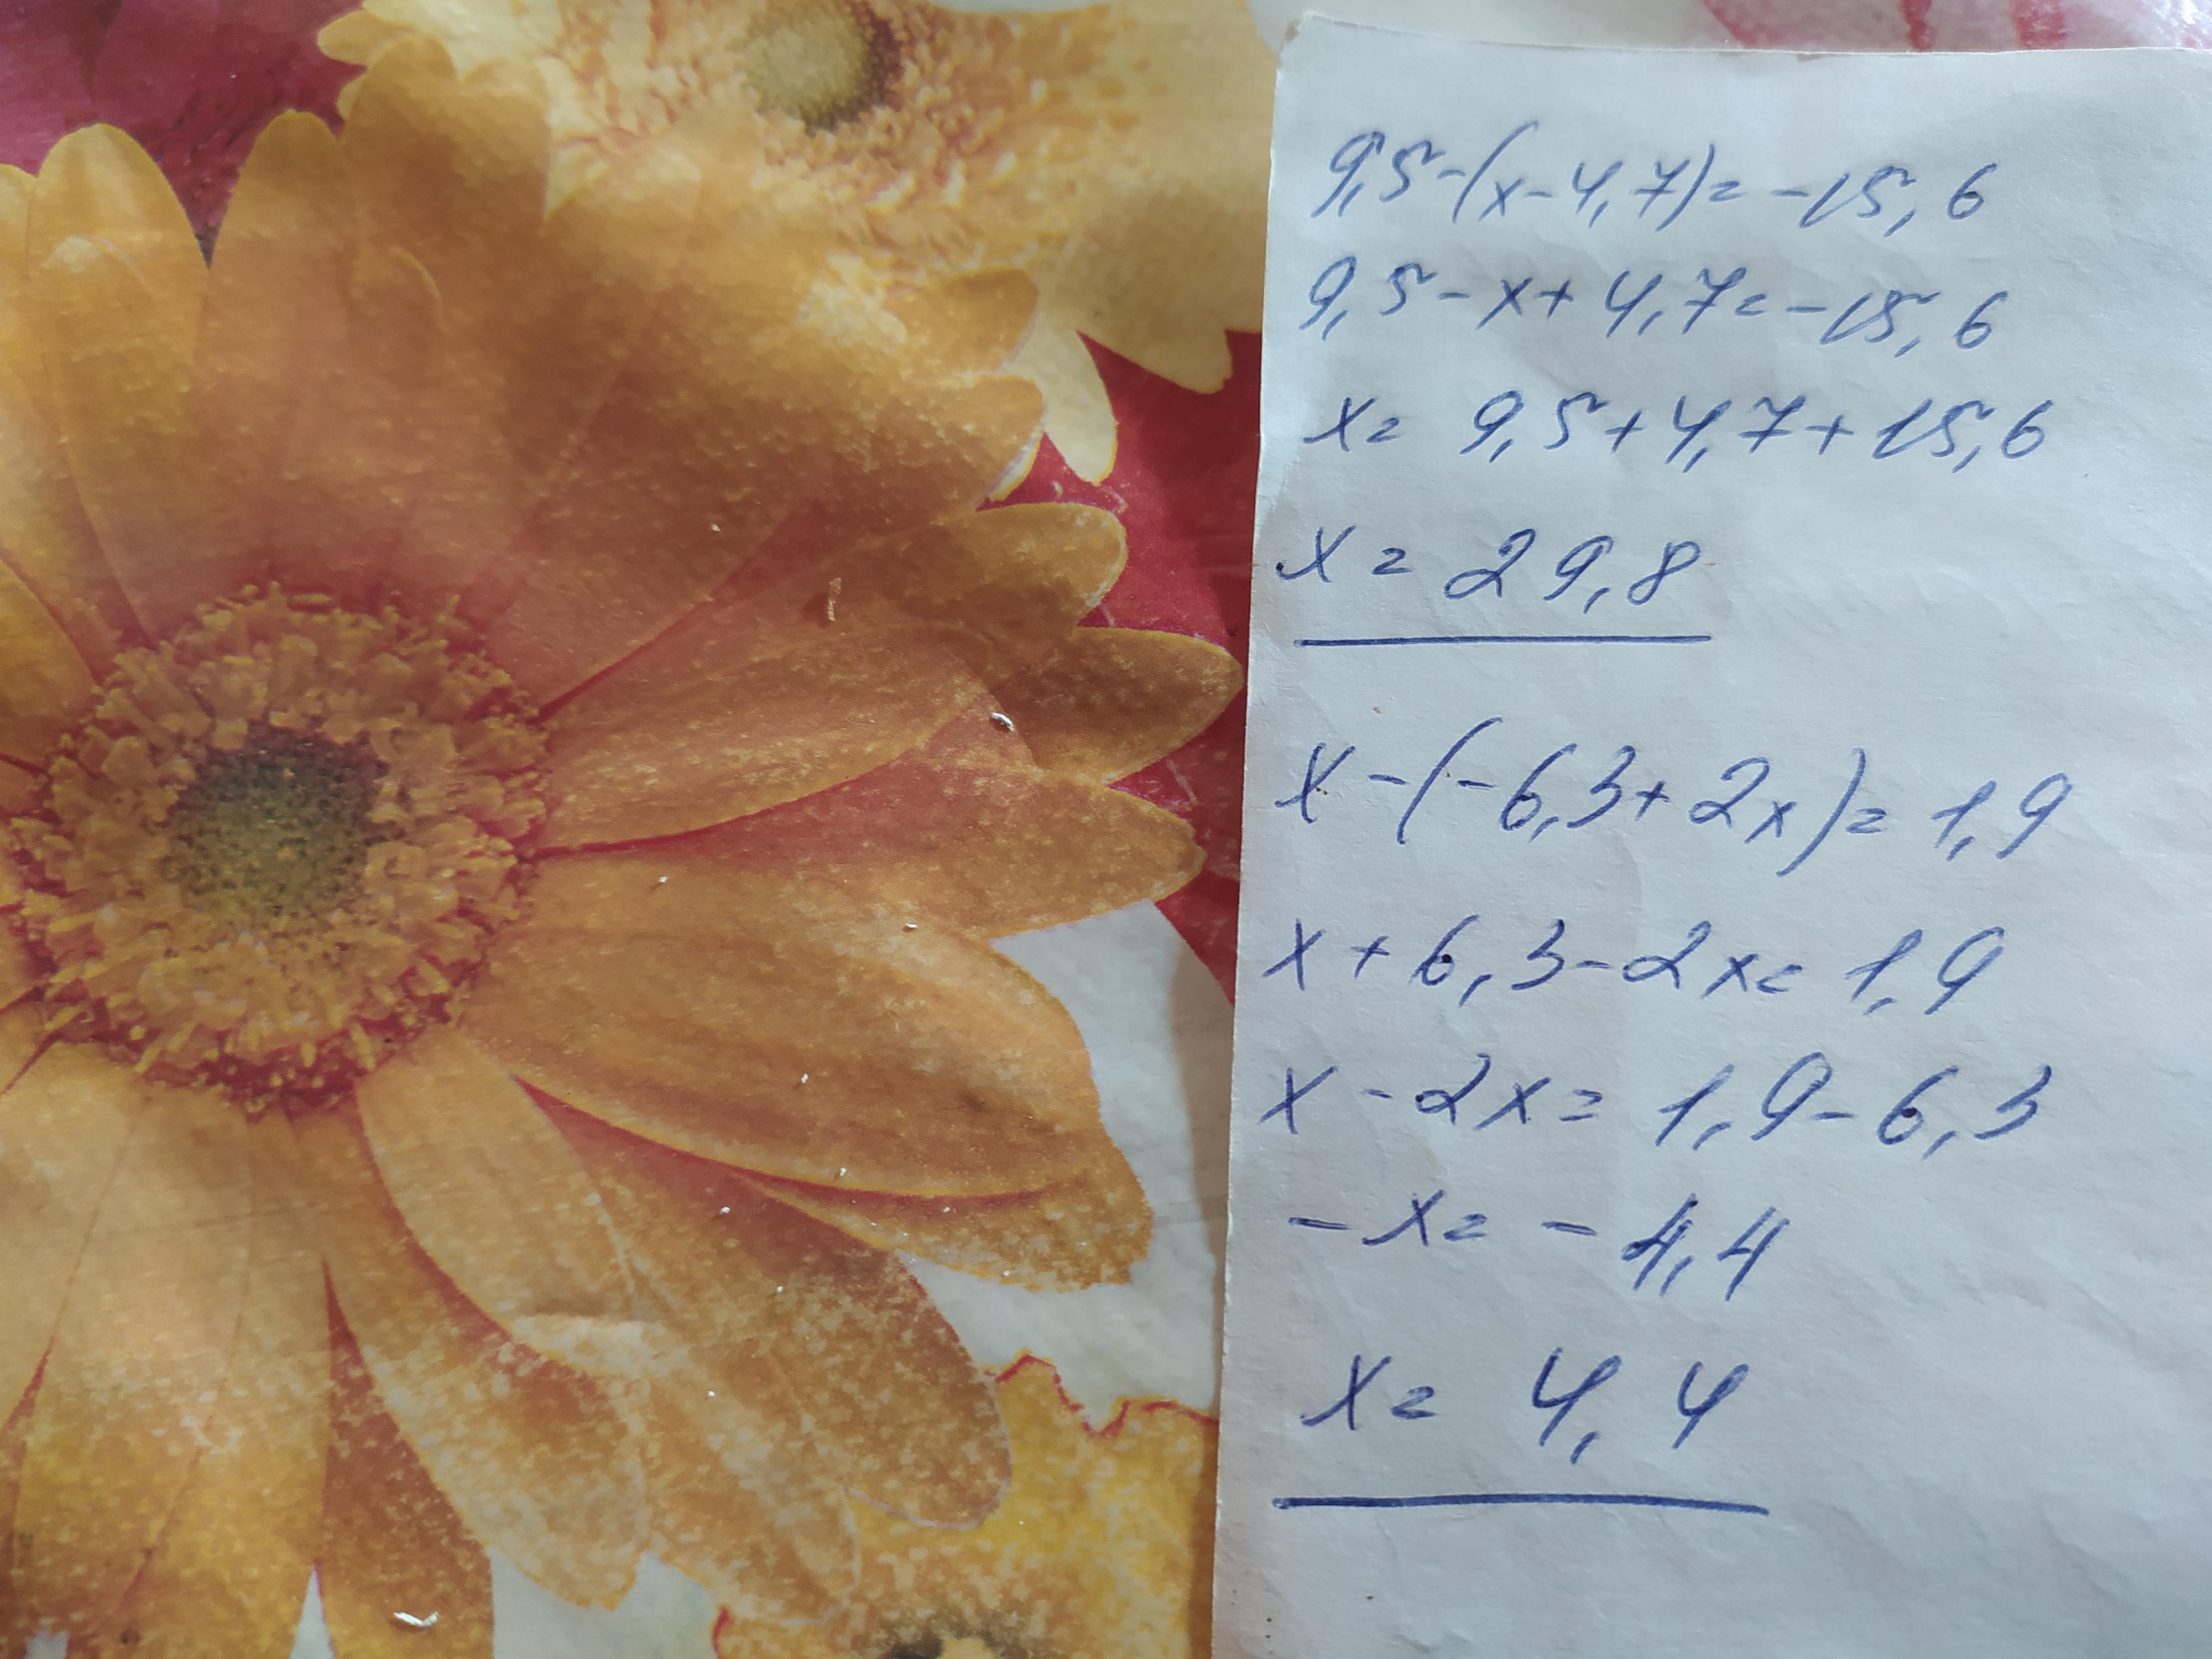 9,5-(x-4,7)=-15,6
9,5-x+4,7=-15,6
x= 9,5+4,7+15,6
x= 29,8
x-(-6,3+2x)=1,9
x+6,3-2x=1,9
x-2x=1,9-6,3
-x=-4,4
x= 4,4